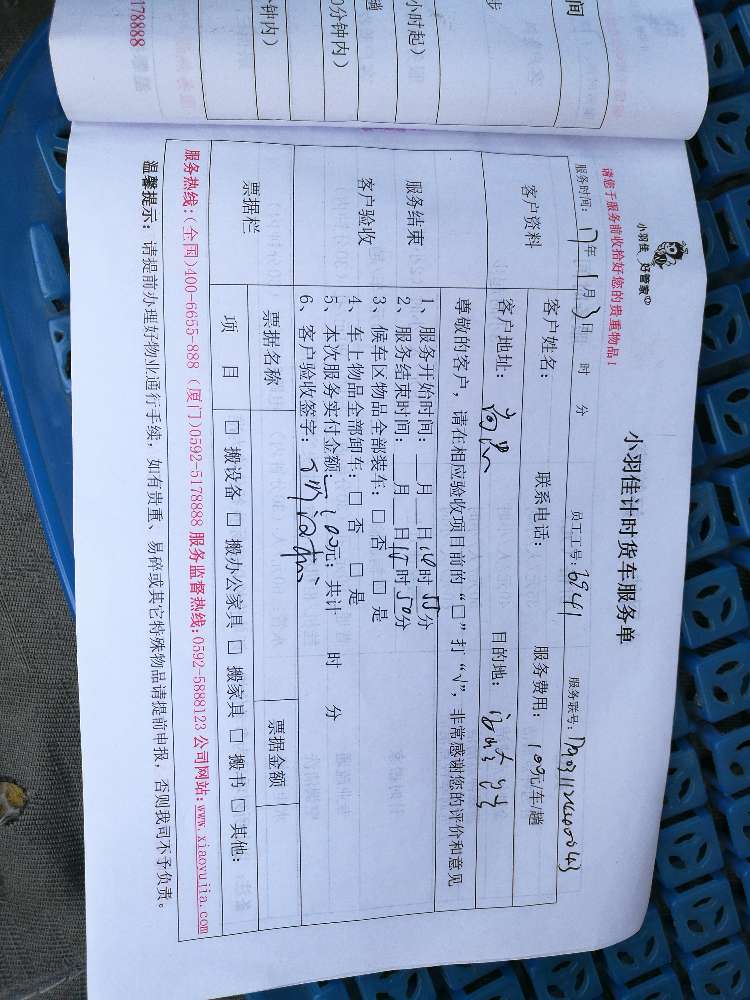 小羽佳 好管家
小羽佳计时货车服务单
请您于服务前收拾好您的贵重物品！
服务时间：17年1月3日 时 分 员工工号：6941 服务联号：
客户资料
客户姓名： 联系电话： 服务费用：100元/车/趟
客户地址： 目的地：
尊敬的客户，请在相应验收项目前的“□”打“√”，非常感谢您的评价和意见
服务结束
客户验收
1、服务开始时间：__月__日16时55分
2、服务结束时间：__月__日17时50分
3、候车区物品全部装车：□ 否 □ 是
4、车上物品全部卸车：□ 否 □ 是
5、本次服务实付金额：100元；共计 时 分
6、客户验收签字：
票据栏
票据名称 票据金额
项 目 □ 搬设备 □ 搬办公家具 □ 搬家具 □ 搬书 □ 其他：
服务热线：(全国)400-6655-888 (厦门)0592-5178888 服务监督热线：0592-5888123 公司网站：www.xiaoyujia.com
温馨提示：请提前办理好物业通行手续，如有贵重、易碎或其它特殊物品请提前申报，否则我司不予负责。
间
步
小时起)
0分钟内)
钟内)
178888